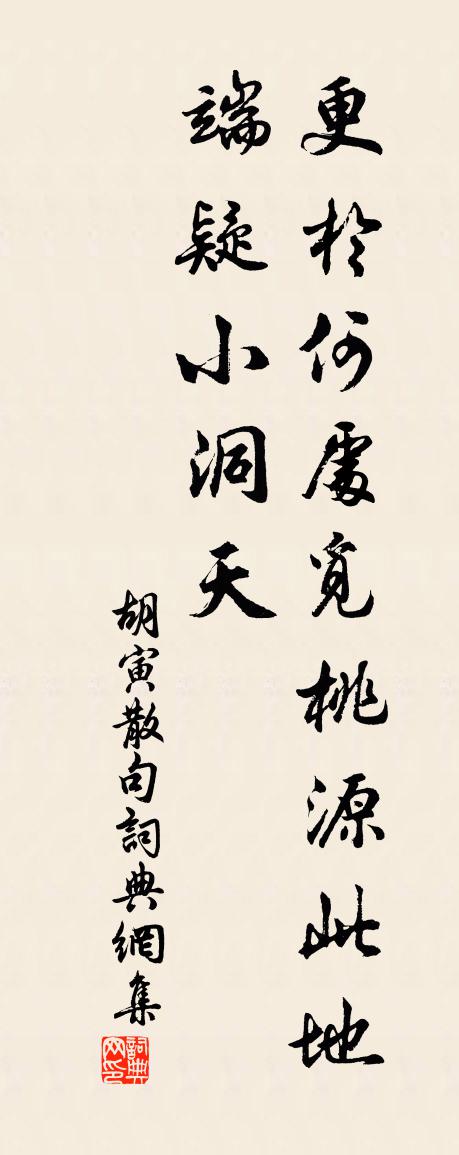 更於何處覓桃源此地
端疑小洞天
胡寅散句詞典網集
詞典網印